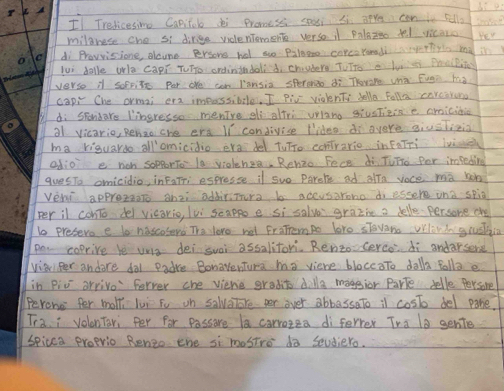 Il Tredicesimo Capitolo di Promessi sposi si apre con la folla
milanese che si dirige violentemente verso il Palazzo del vicario
di Provvisione, alcune Persone nel suo Palazzo cercarono di avvertirlo ma
lui dalle urla capi Tutto ordinandoli di chiudere Tutto e lui si
verso il soffitto Per che con l'ansia sperando di Trovare una Fuga ma
capi che ormai era impossibile. I Più violenti della Folla cercarono
di sfondare l'ingresso mentre gli altri urlano giustizia e omicidio
al vicario, Renzo che era lì condivise l'idea di avere giustizia
ma riguardo all'omicidio era del Tutto contrario infatti lui
odio' e non sopporto' la violenza. Renzo Fece di Tutto Per impedire
questo omicidio, infatti espresse il suo Parere ad alta voce ma non
veni apprezzato anzi addirittura lo accusarono di essere una spia
Per il conto del vicario, lui scappo e si salvo' grazie a delle Persone che
lo Presero e lo nascosero Tra loro nel Frattempo loro stavano urlando giustizia
Per coprire le urla dei suoi assalitori. Renzo cerco' di andarsene
via Per andare dal Padre Bonaventura ma viene bloccato dalla folla e
in Più arrivo' Ferrer che viene gradito dalla maggior Parte delle Persone
Perche' Per molti lui fu un salvatore per aver abbassato il costo del pane.
Tra i volontari Per far Passare la carrozza di Ferrer Tra la gente
spicca proprio Renzo che si mostro' da scudiero.